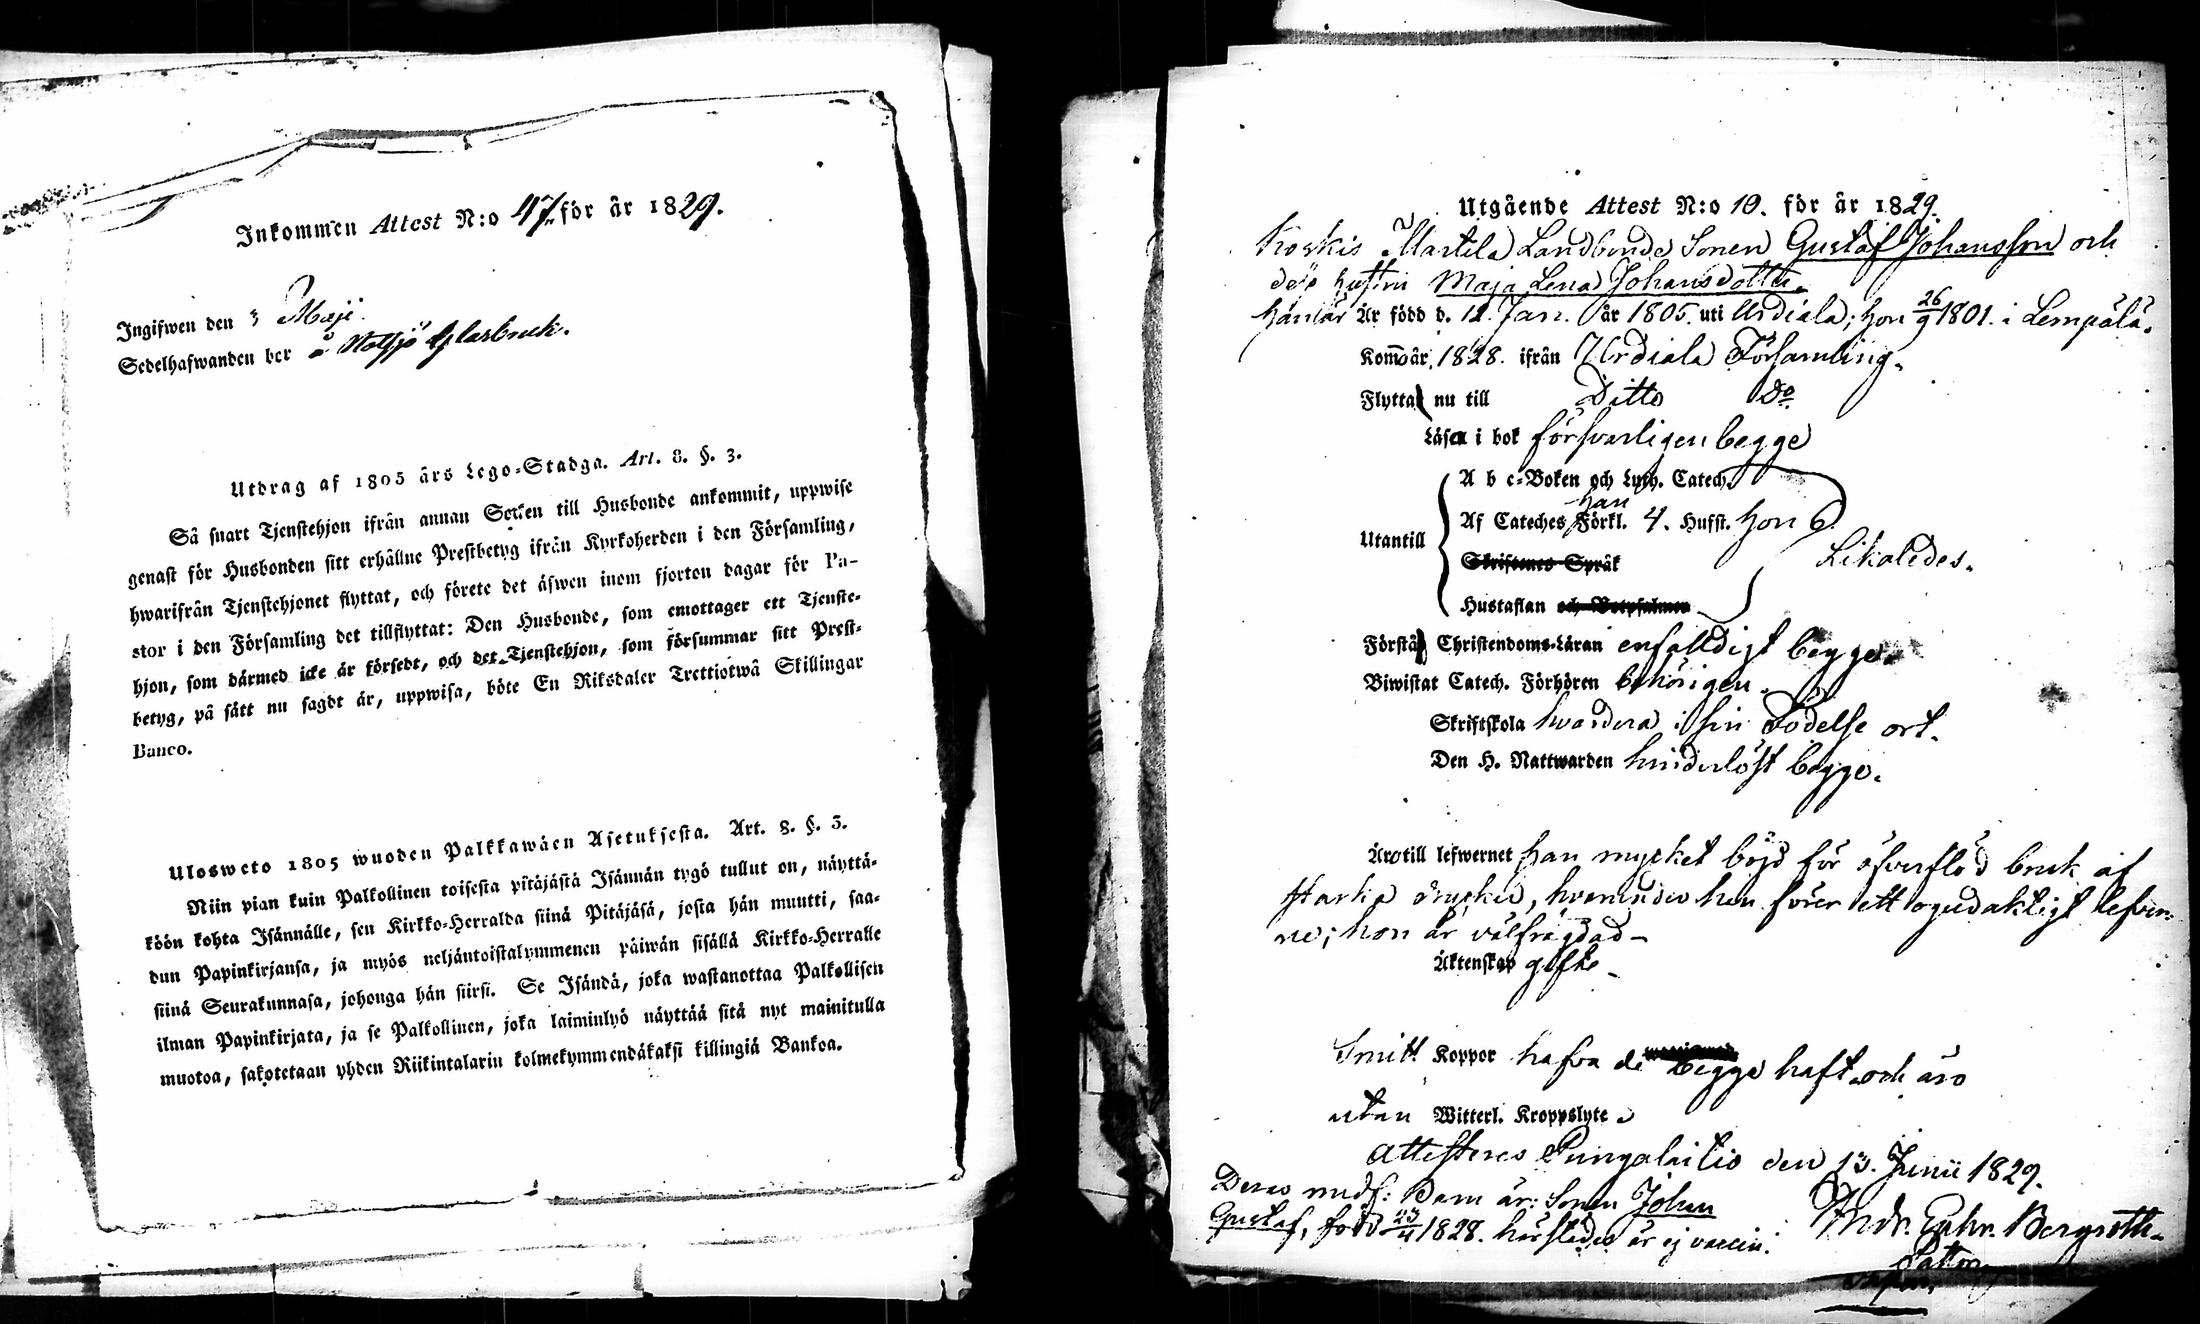 Inkommen Attest N:o 47 för år 1829.
Ingifwen den 3 Maji
Sedelhafwanden ber å Notsjö Glasbruk.
Utdrag af 1805 års Lego-Stadga. Art. 8. §. 3.
Så snart Tjenstehjon ifrån annan Socken till Husbonde ankommit, uppwise
genast för Husbonden sitt erhållne Prestbetyg ifrån Kyrkoherden i den Församling,
hwarifrån Tjenstehjonet flyttat, och förete det äfwen inom fjorton dagar för Pa-
stor i den Församling det tillflyttat: Den Husbonde, som emottager ett Tjenste-
hjon, som därmed icke är försedt, och det Tjenstehjon, som försummar sitt Prest-
betyg, på sätt nu sagdt är, uppwisa, böte En Riksdaler Trettiotwå Skillingar
Banco.
Ulosweto 1805 wuoden Palkkawäen Asetuksesta. Art. 8. §. 3.
Niin pian kuin Palkollinen toisesta pitäjästä Isännän tygö tullut on, näyttä-
köön kohta Isännälle, sen Kirkko-Herralda siinä Pitäjäsä, josta hän muutti, saa-
dun Papinkirjansa, ja myös neljäntoistalymmenen päiwän sisällä Kirkko-Herralle
siinä Seurakunnasa, johonga hän siirsi. Se Isändä, joka wastanottaa Palkollisen
ilman Papinkirjata, ja se Palkollinen, joka laiminlyö näyttää sitä nyt mainitulla
muotoa, sakotetaan yhden Riikintalarin kolmekymmendäkaksi killingiä Bankoa.
Utgående Attest N:o 10. för år 1829.
Koskis Martila Landbonde Sonen Gustaf Johansson och
dess hustru Maja Lena Johansdotter.
han är Är född d. 12. Jan. år 1805. uti Urdiala; hon 26/9 1801. i Lempälä.
Kom år 1828. ifrån Urdiala Församling.
Flytta nu till Ditto Do
Läsa i bok försvarligen begge
A b c-Boken och Luth. Catech.
han
Utantill Af Cateches Förkl. 4. Hufst. hon 6
Skriftenes Språk Likaledes.
Hustaflan och Botpsalmen
Förstå Christendoms-Läran enfalldigt begge.
Biwistat Catech. Förhören behörigen.
Skriftskola hvardera i sin Födelse ort.
Den H. Nattwarden hinderlöst begge.
Äro till lefwernet han mycket böjd för öfverflöd bruk af
starka drycker, hvarunder han förer ett ogudaktigt lefver-
ne; hon är välfrägdad -
Äktenskap gifte -
Smitt Koppor hafva de begge haft och äro
utan Witterl. Kroppslyte
Attesteres Pungalaitio den 13. Junii 1829.
Deras medf: Barn är: Sonen Johan
Gustaf, född 23/11 1828. härstädes är ej vaccin:
Andr. Ephr. Bergroth.
Pastor